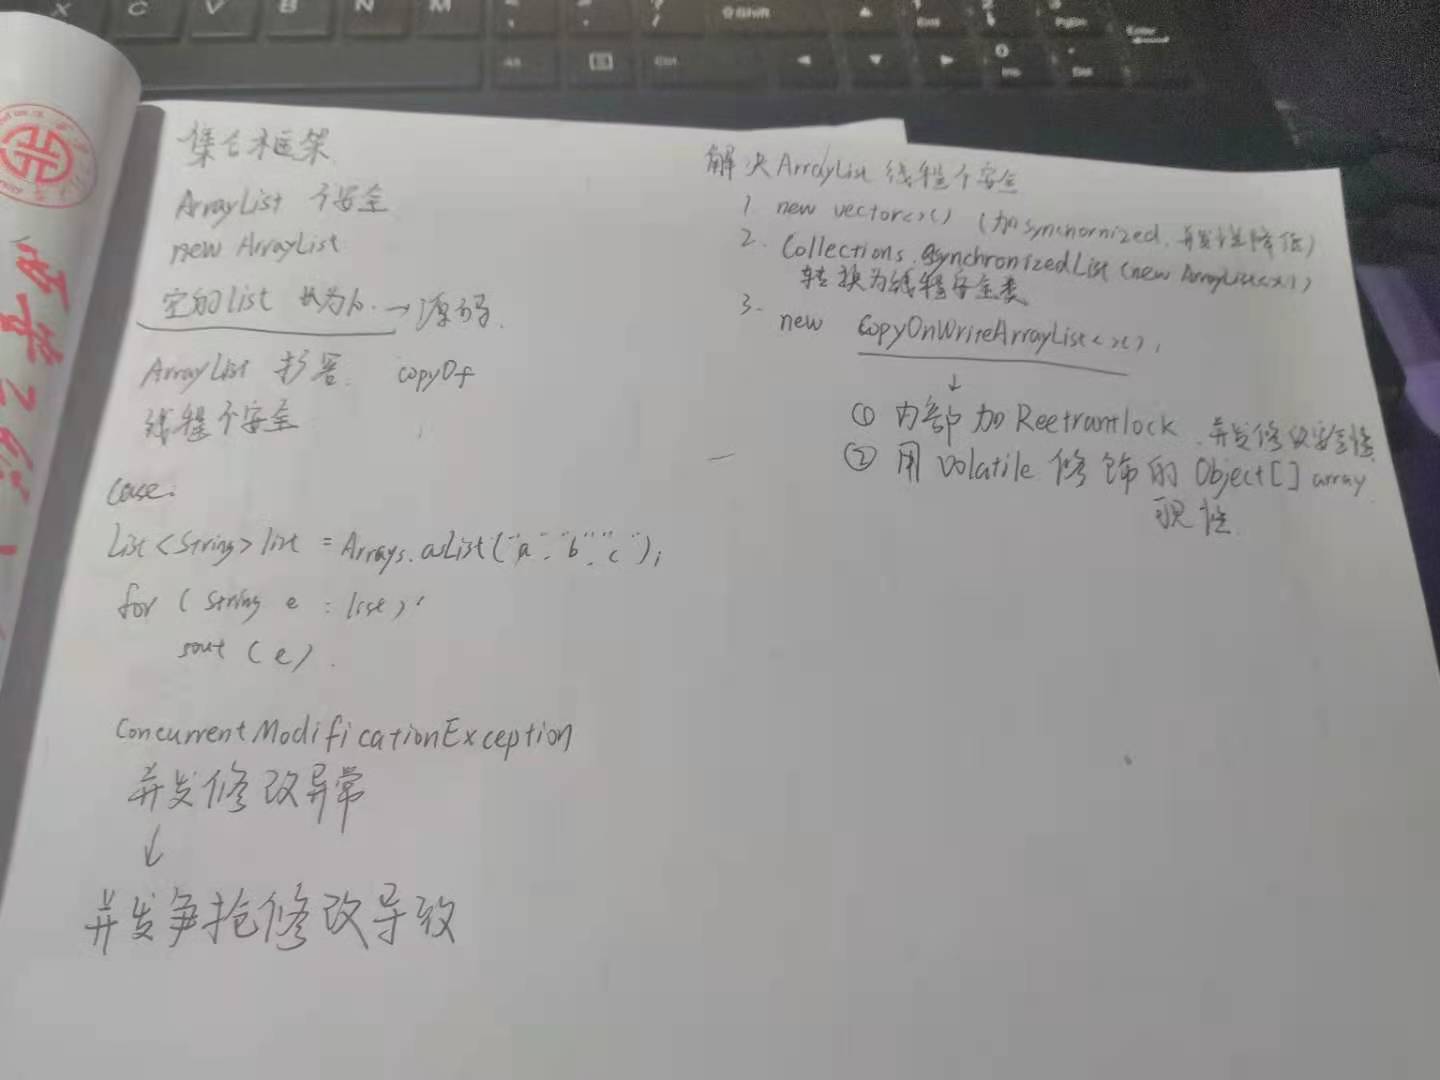 集合框架
ArrayList 不安全
new ArrayList
空的list 长为10. → 源码.
ArrayList 扩容. copyOf
线程不安全
Case:
List<String> list = Arrays.asList("a", "b", "c");
for (String e : list)
sout (e).
ConcurrentModificationException
并发修改异常
↓
并发争抢修改导致
解决ArrayList 线程不安全
1. new vector<>() (加synchornized, 并发性降低)
2. Collections.synchronizedList (new ArrayList<>())
转换为线程安全类
3. new CopyOnWriteArrayList<>();
↓
① 内部加Reetrantlock, 并发修改安全性
② 用volatile修饰的Object[] array
可见性.